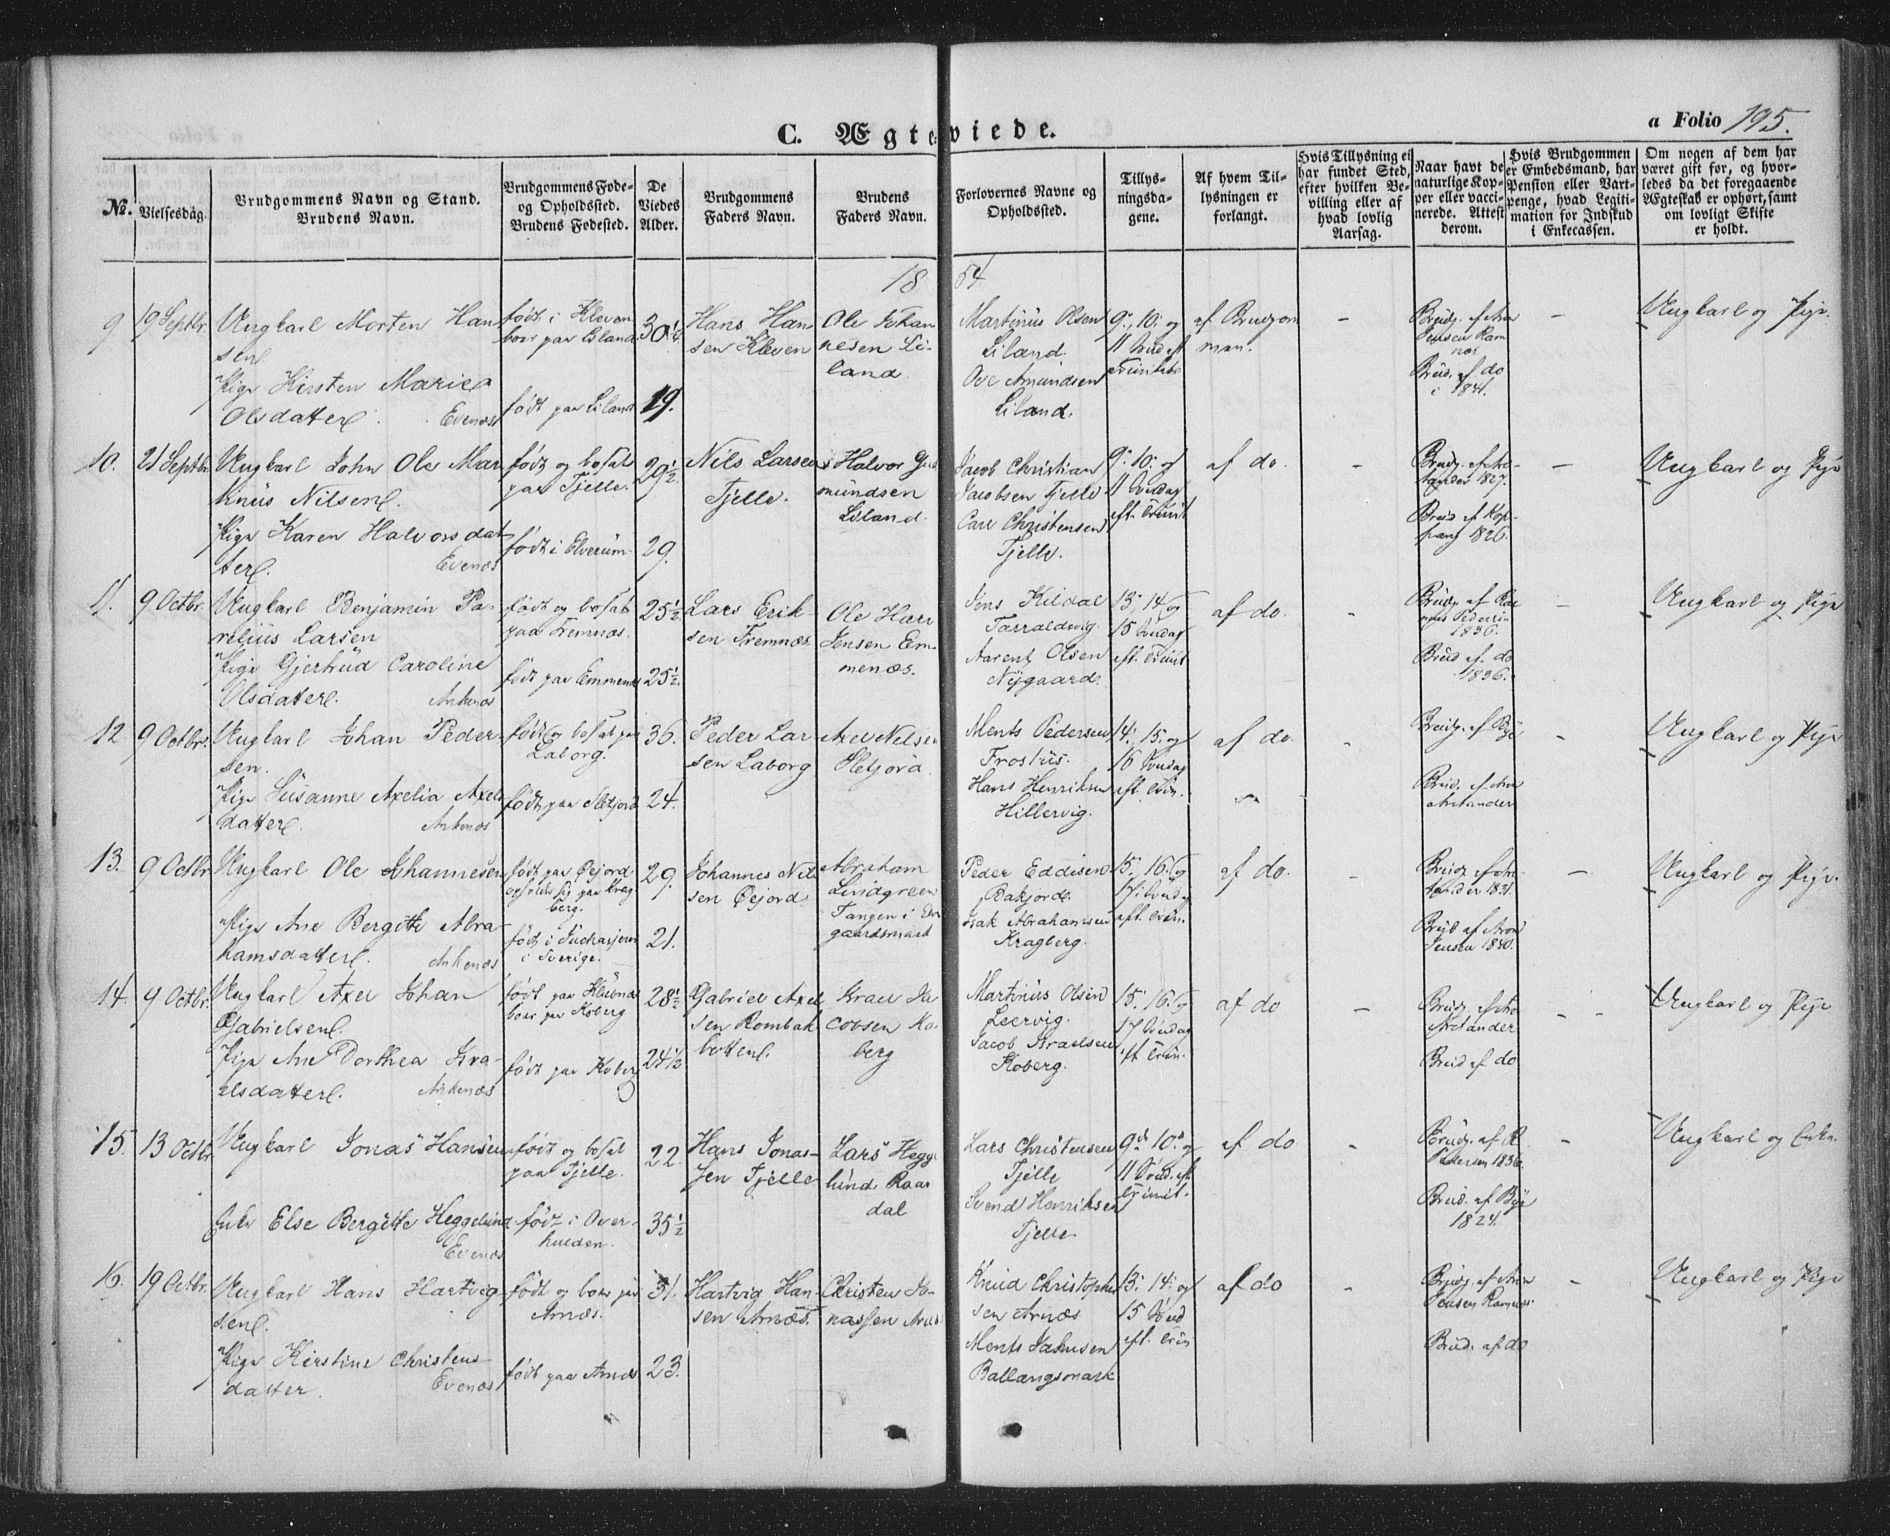 C. Ægteviede.
a Folio 195.
No.
Vielsesdag.
Brudgommens Navn og Stand.
Brudens Navn.
Brudgommens Føde-
og Opholdssted.
Brudens Fødested.
De
Viedes
Alder.
Brudgommens
Faders Navn.
Brudens
Faders Navn.
Forlovernes Navne og
Opholdssted.
Tillys-
ningsda-
gene.
Af hvem Til-
lysningen er
forlangt.
Hvis Tillysning ei
har fundet Sted,
efter hvilken Be-
villing eller af
hvad lovlig
Aarsag.
Naar havt de
naturlige Kop-
per eller vacci-
nerede. Attest
derom.
Hvis Brudgommen
er Embedsmand, har
Pension eller Vart-
penge, hvad Legiti-
mation for Indskud
i Enkecassen.
Om nogen af dem har
været gift før, og hvor-
ledes da det foregaaende
Ægteskab er ophørt, samt
om lovligt Skifte
er holdt.
18 54
9. 19 Septbr.
Ungkarl Morten Han
sen
Pige Kirsten Marie
Olsdatter. Evenæs
født i Kleven
boer paa Liland
født paa Liland
30½
19.
Hans Han
sen Kleven
Ole Johan
nesen Li-
land.
Martinus Olsen
Liland.
Ove Amundsen
Liland.
9, 10 og
11 Sønd. eft
Trinitatis
af Brudgom
men.
-
Brudg. af Aron
Jensen Ramnæs
Brud. af do
i 1841.
Ungkarl og Pige.
10. 21 Septbr
Ungkarl John Ole Mar
knus Nilsen.
Pige Karen Halvorsdat
ter. Evenæs
født og bosat
paa Tjelle.
født i Elverum
29½
29.
Nils Larsen
Tjelle.
Halvor Gud
mundsen
Liland.
Jacob Christian
Jacobsen Tjelle
Carl Christensen
Tjelle.
9, 10 og
11 Søndag
eft. Trinit
af do.
-
1827.
1826.
-
Ungkarl og Pige
11. 9 Octbr.
Ungkarl Benjamin Pa-
relius Larsen
Pige Gjertrud Caroline
Olsdatter. Ankenæs
født og bosat
paa Fremnæs.
født paa Emmenæs
25½
25½.
Lars Erik-
sen Fremnæs.
Ole Hari
Jensen Em-
menæs.
Jens Kildal
Taraldsvig.
Aarent Olsen
Nygaard.
13, 14 og
15 Søndag
eft. Trinit
af do.
-
1836.
Brud af do
1836.
-
Ungkarl og Pige
12 9 Octbr.
Ungkarl Johan Peder-
sen.
Pige Susanne Axelia Axels
datter. Ankenæs
født og bosat paa
Laborg.
36.
24.
Peder Lar
sen Laborg
Axel Nilsen
Ments Pedersen
Frostus.
Hans Henriksen
Hillervig.
14, 15 og
16 Søndag
eft. Trin.
af do
-
Brudg. af Bye
-
Ungkarl og Pige
13. 9 Octbr
Ungkarl Ole Johannesen
Pige Ane Bergitte Abra-
hamsdatter. Ankenæs
født paa Øejord
berg.
i Sverige.
29.
21.
Johannes Nil
sen Øejord
Abraham
Lindgreen
Peder Eddisen
Bakjord.
Isak Abrahamsen
Kragberg.
15, 16 og
17 Søndag
eft. Trin.
af do.
-
1831.
Brud af Aron
Jensen 1840.
-
Ungkarl og Pige.
14. 9 Octbr.
Ungkarl Axel Johan
Gabrielsen.
Pige Ane Dorthea Isra-
elsdatter. Ankenæs
boer paa Koberg
født paa Koberg
28½
24½
Gabriel Axel
sen Rombak
botten.
Israel Ja
cobsen Ko-
berg
Martinus Olsen
Leervig.
Jacob Israelsen
Koberg.
15, 16 og
17 Søndag
eft Trin.
af do
-
Brud af do
-
Ungkarl og Pige
15. 13 Octbr
Ungkarl Jonas Hansen
Enke Else Bergitte Heggelund
Evenæs
født og bosat
paa Tjelle.
født i Over-
halden.
22.
35½
Hans Jonas-
sen Tjelle
Lars Hegge
lund Raar
dal
Lars Christensen
Tjelle
Svend Henriksen
Tjelle.
9de 10de og
11 Sønd. eft
Trinit.
af do
-
Brudg. af R.
Pedersen 1836.
Brud. af Bye
1824.
-
Ungkarl og Enke.
16. 19 Octbr.
Ungkarl Hans Hartvig-
sen.
Pige Kirstine Christens-
datter. Evenæs
født og boer paa
Arnæs.
født paa Arnæs
31.
23.
Hartvig Han-
sen Arnæs.
Christen Jo-
nassen Arnæs
Knud Christopher
sen Arnæs
Ments Jakusen
Ballangsmark
13, 14 og
15 Sønd
eft. Trin
af do
-
Brudg. af Aron
Jensen Ramnæs
Brud. af do
-
Ungkarl og Pige